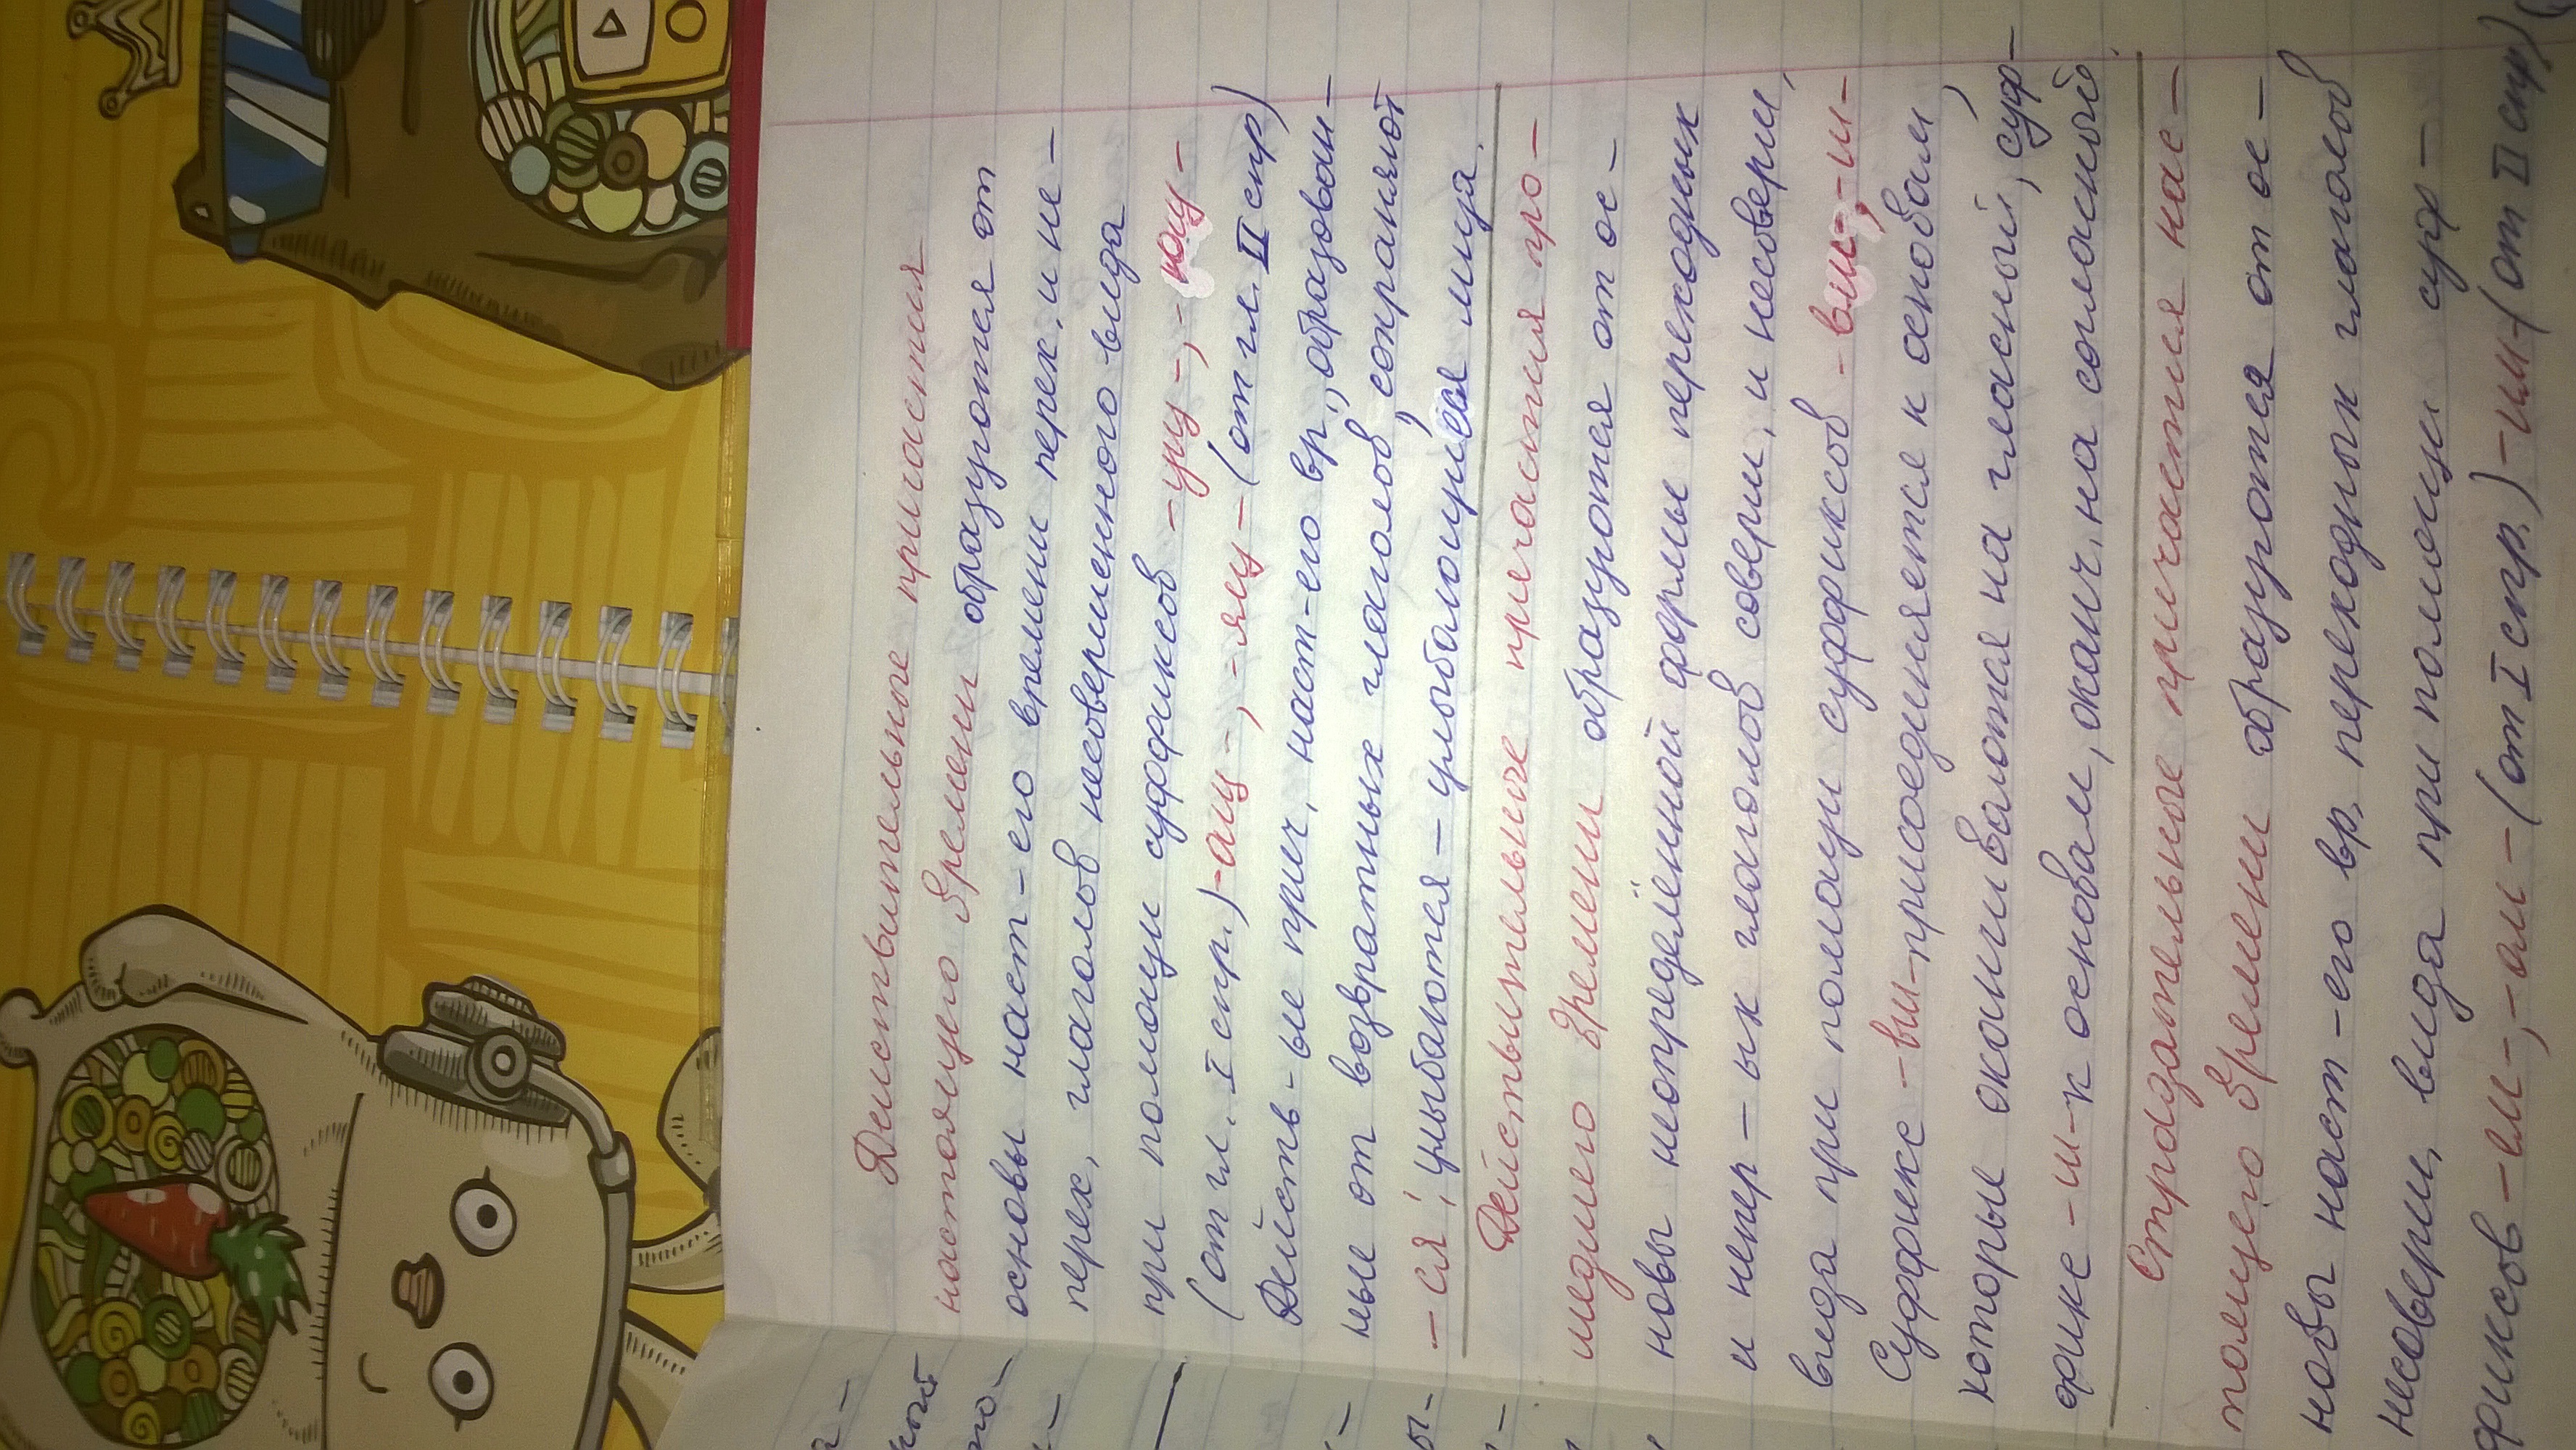 Действительные причастия
настоящего времени образуются от
основы наст-его времени перех. и не-
перех. глаголов несовершенного вида
при помощи суффиксов -ущ-, -ющ-
(от гл. I спр.) -ащ-, -ящ- (от гл. II спр)
Действ-ые прич. наст-его вр., образован-
ные от возвратных глаголов, сохраняют
-ся: улыбаются - улыбающиеся лица.
Действительные причастия про-
шедшего времени образуются от ос-
новы неопределённой формы переходных
и непер-ых глаголов соверш. и несоверш.
вида при помощи суффиксов -вш-, -ш-
Суффикс -вш- присоединяется к основам,
которые оканчиваются на гласный, суф-
фикс -ш- к основам, оканч. на согласный.
Страдательные причастия нас-
тоящего времени образуются от ос-
новы наст-его вр. переходных глаголов
несоверш. вида при помощи суф-
фиксов -ем-, -ом- (от I спр.) -им- (от II спр)